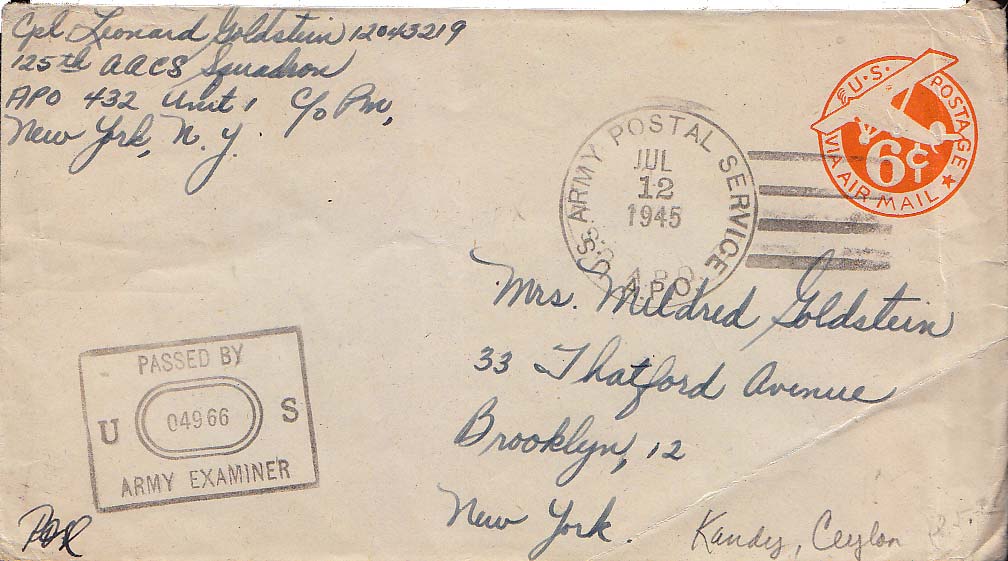 Cpl Leonard Goldstein 12043219
125th AACS Squadron
APO 432 Unit 1 c/o Pm,
New York, N. Y.
U.S. POSTAGE
6¢
VIA AIR MAIL
U.S. ARMY POSTAL SERVICE
JUL
12
1945
A.P.O.
Mrs. Mildred Goldstein
33 Thatford Avenue
Brooklyn, 12
New York.
PASSED BY
U 04966 S
ARMY EXAMINER
Kandy, Ceylon